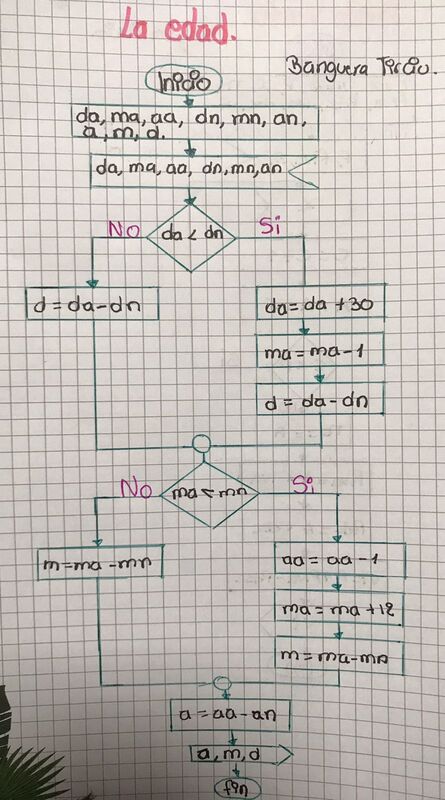 La edad.
Banguera Tircio.
Inicio
da, ma, aa, dn, mn, an,
a, m, d.
da, ma, aa, dn, mn, an
No
da < dn
Si
d = da - dn
da = da + 30
ma = ma - 1
d = da - dn
No
ma < mn
Si
m = ma - mn
aa = aa - 1
ma = ma + 12
m = ma - mn
a = aa - an
a, m, d
fin